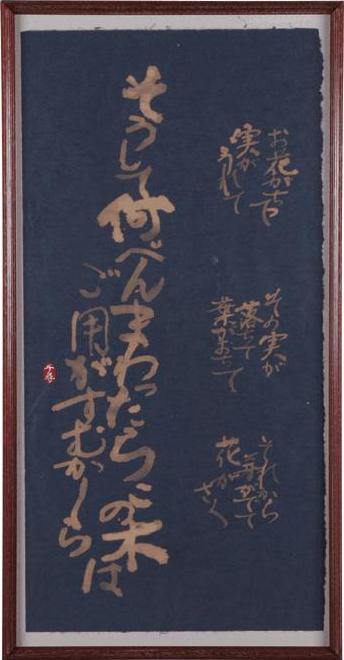 お花がちって
実が
うれて
その実が
落ちて
葉がおちて
それから
芽がでて
花が
さく
そうして何べんまわったらこの木は
ご用がすむかしら